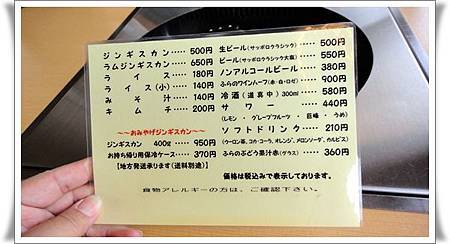 ジンギスカン・・・・・ 500円
ラムジンギスカン・・・・・ 650円
ライス・・・・・ 180円
ライス(小)・・・・・ 140円
みそ汁・・・・・ 140円
キムチ・・・・・ 200円
～～おみやげジンギスカン～～
ジンギスカン 400g・・・・・ 950円
お持ち帰り用保冷ケース・・・・ 370円
【地方発送承ります(送料別途)】
生ビール(サッポロクラシック)・・・・ 500円
ビール(サッポロクラシック大瓶)・・・・ 550円
ノンアルコールビール・・・・ 380円
ふらのワインハーフ(赤・白・ロゼ)・・・・ 900円
冷酒(道真中)300ml・・・・ 580円
サワー・・・・ 440円
(レモン・グレープフルーツ・巨峰・うめ)
ソフトドリンク・・・・ 210円
(ウーロン茶、コカ・コーラ、オレンジ、メロンソーダ、カルピス)
ふらのぶどう果汁赤(グラス)・・・ 360円
価格は税込みで表示しております。
食物アレルギーの方は、ご確認下さい。